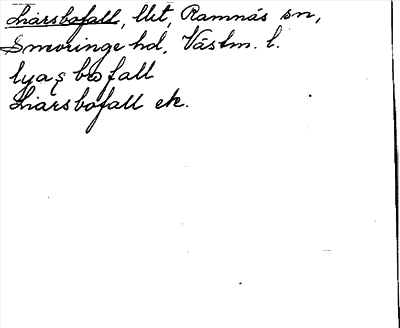 Liarsbofall, llt, Ramnäs sn,
Snevringe hd, Västm. l.
lyaş bofall
Liarsbofall ek.